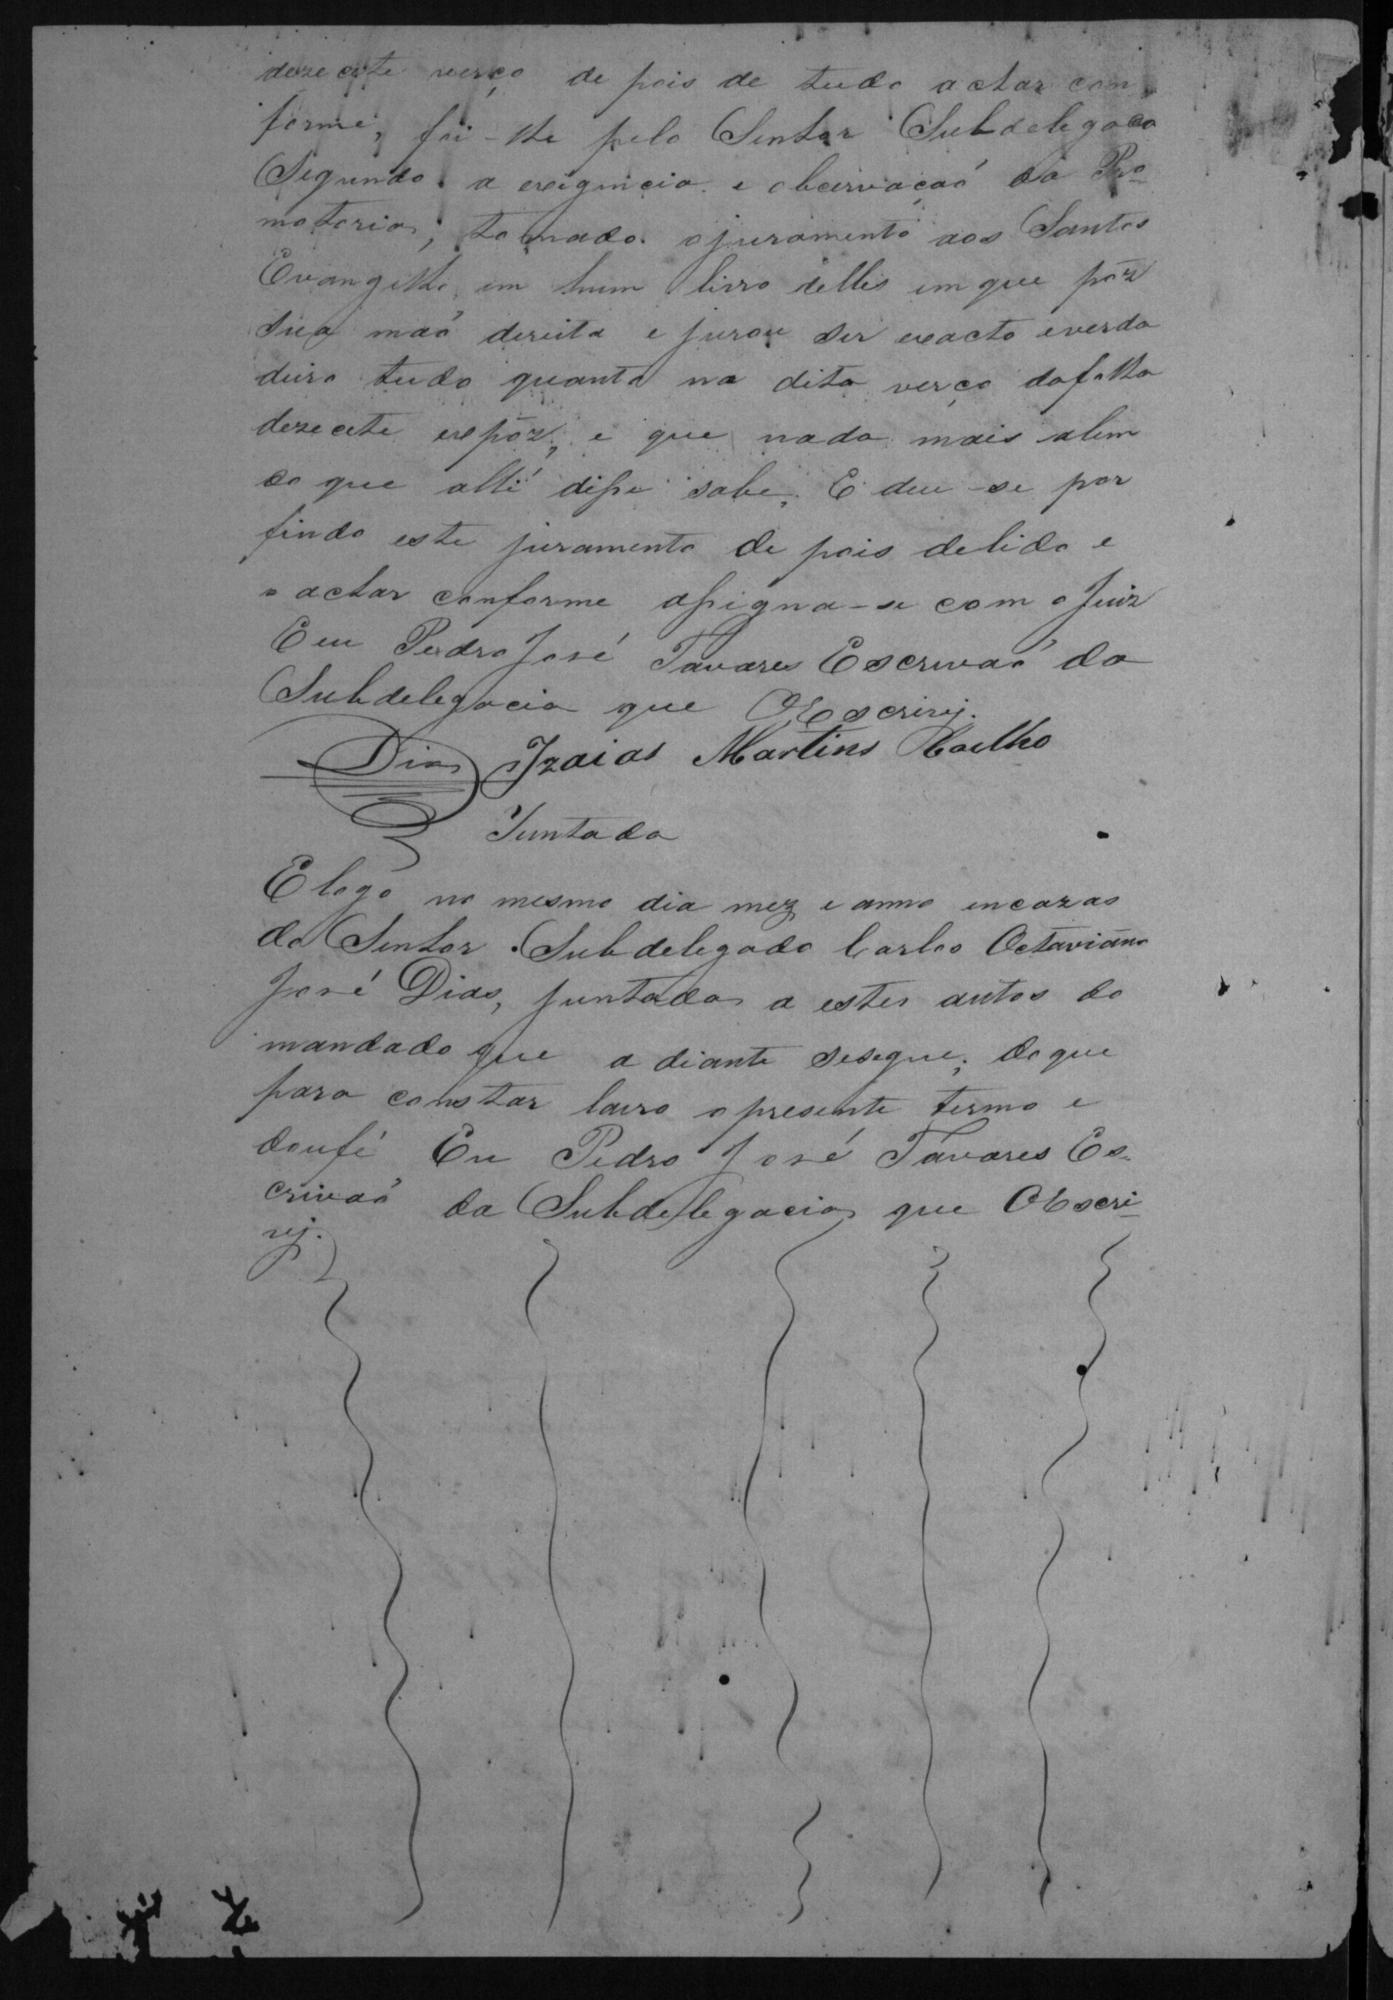 dezecete verço de pois de tudo achar con
forme, foi-lhe pelo Senhor Subdelegado
Segundo a exigencia e obcervaçaõ da Pro-
motoria, tomado o juramento aos Santos
Evangelho, em hum livro delles em que pôz
sua maõ dereita e jurou ser exacto everda
deiro tudo quanto no dito verço dafolha
dezecete expôz, e que nada mais alem
do que alli disse sabe. E deu-se por
findo este juramento de pois delido e
o achar conforme assigna-se com o Juiz
E eu Pedro José Tavares Escrivaõ da
Subdelegacia que OEscrivj.
Dias Izaias Martins Coelho
Juntada
E logo no mesmo dia mez e anno encazas
do Senhor Subdelegado Carlos Octaviano
José Dias, juntada a estes autos do
mandado que a diante sesegue; doque
para constar lavro opresente termo e
doufé Eu Pedro José Tavares Es-
crivaõ da Subdelegacia que OEscri-
vj.